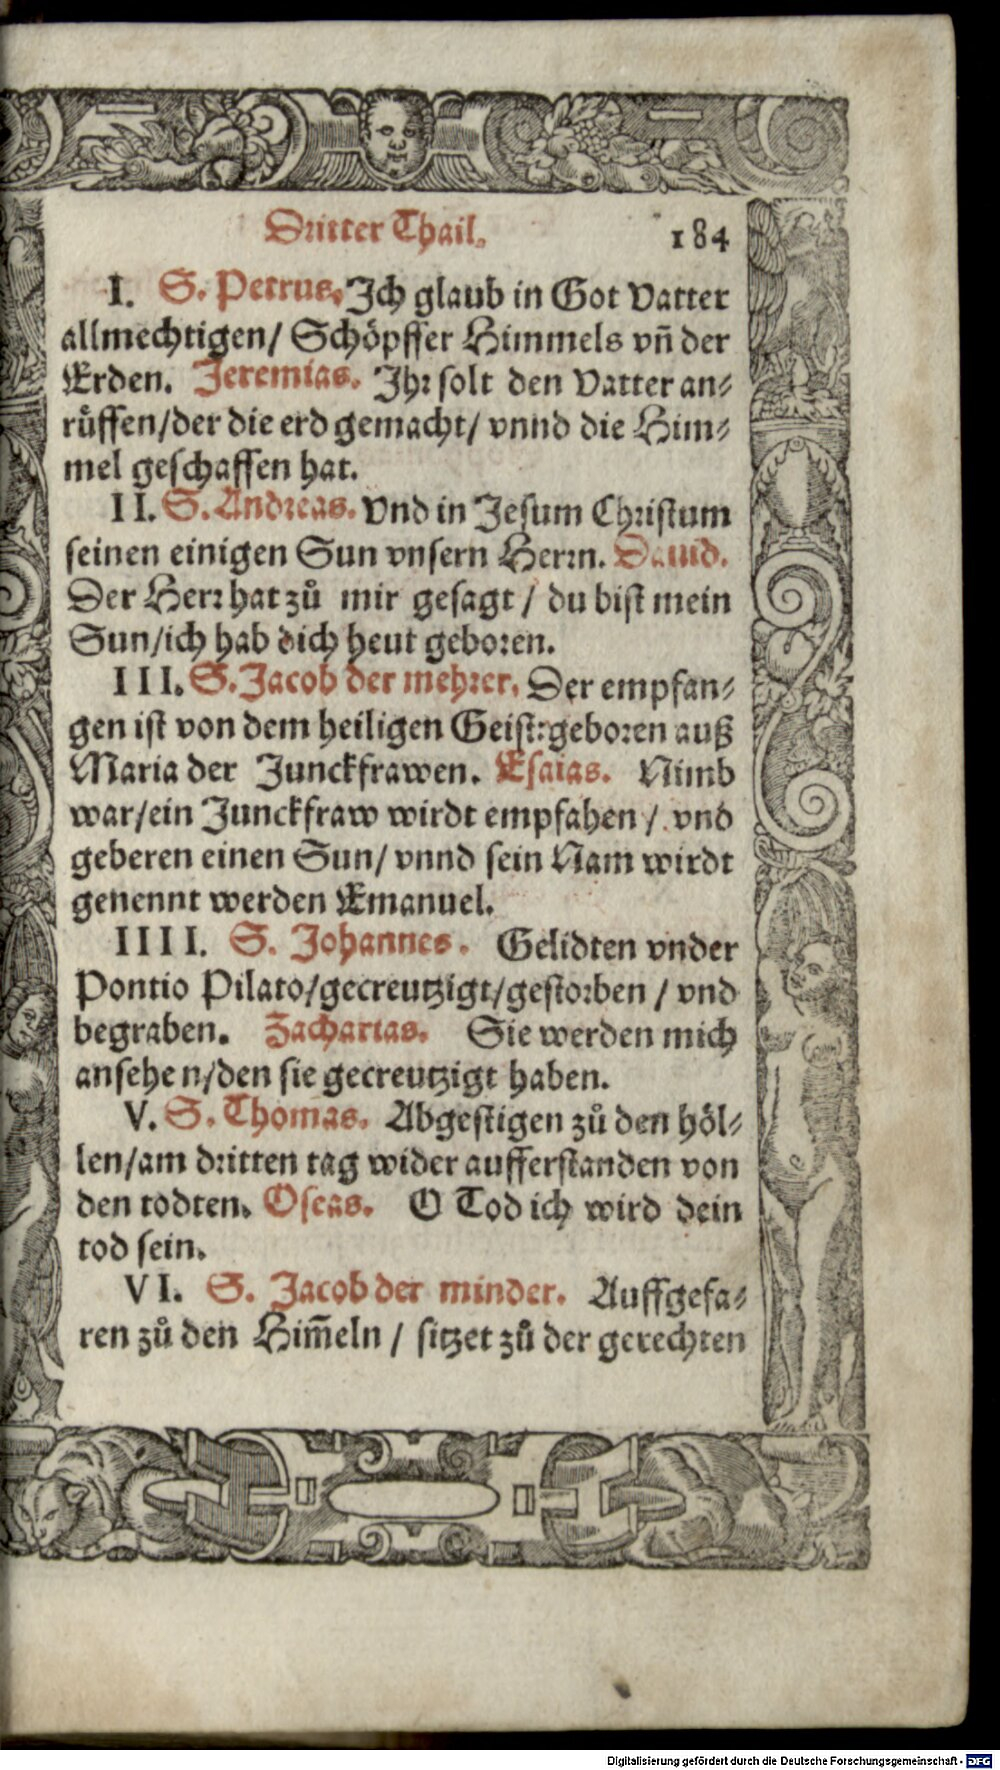 Dritter Thail. 184
I. S. Petrus. Ich glaub in Got Vatter
allmechtigen/ Schöpffer Himmels vñ der
Erden. Jeremias. Ihr solt den Vatter an⸗
růffen/der die erd gemacht/ vnnd die Him⸗
mel geschaffen hat.
II. S. Andreas. Vnd in Jesum Christum
seinen einigen Sun vnsern Herrn. Dauid.
Der Herr hat zů mir gesagt / du bist mein
Sun/ich hab dich heut geboren.
III. S. Jacob der mehrer. Der empfan⸗
gen ist von dem heiligen Geist: geboren auß
Maria der Junckfrawen. Esaias. Nimb
war/ein Junckfraw wirdt empfahen / vnd
geberen einen Sun/ vnnd sein Nam wirdt
genennt werden Emanuel.
IIII. S. Johannes. Gelidten vnder
Pontio Pilato/gecreutzigt/gestorben / vnd
begraben. Zacharias. Sie werden mich
ansehen/den sie gecreutzigt haben.
V. S. Thomas. Abgestigen zů den höl⸗
len/am dritten tag wider aufferstanden von
den todten. Oseas. O Tod ich wird dein
tod sein.
VI. S. Jacob der minder. Auffgefa⸗
ren zů den Him̃eln / sitzet zů der gerechten
Digitalisierung gefördert durch die Deutsche Forschungsgemeinschaft - DFG